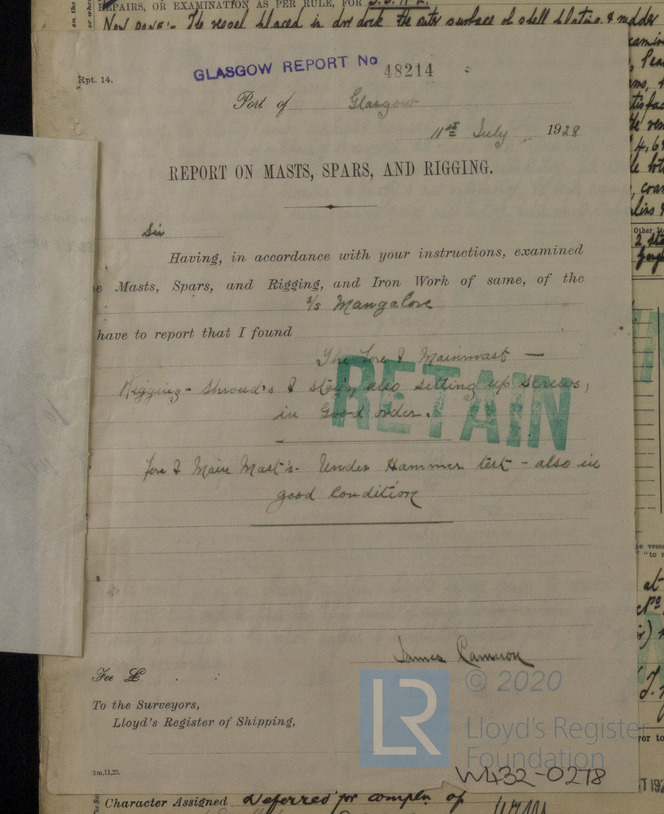 REPAIRS, OR EXAMINATION AS PER RULE, FOR
Now DONE:- The vessel placed in dry dock the outer surface of shell plating & rudder
Rpt. 14.
GLASGOW REPORT No 48214
Port of Glasgow
11th July 1928
REPORT ON MASTS, SPARS, AND RIGGING.
Sir
Having, in accordance with your instructions, examined
Masts, Spars, and Rigging, and Iron Work of same, of the
S/S Mangalore
have to report that I found
The Fore & Mainmast —
Rigging - Shroud's & Stays also setting up screws,
in Good order.
RETAIN
Fore & Main Mast's - Under Hammer test - also in
good Condition
James Cameron
Fee £
To the Surveyors,
Lloyd's Register of Shipping,
© 2020
LR
Lloyd's Register
Foundation
W432-0278
Character Assigned Deferred for compln of